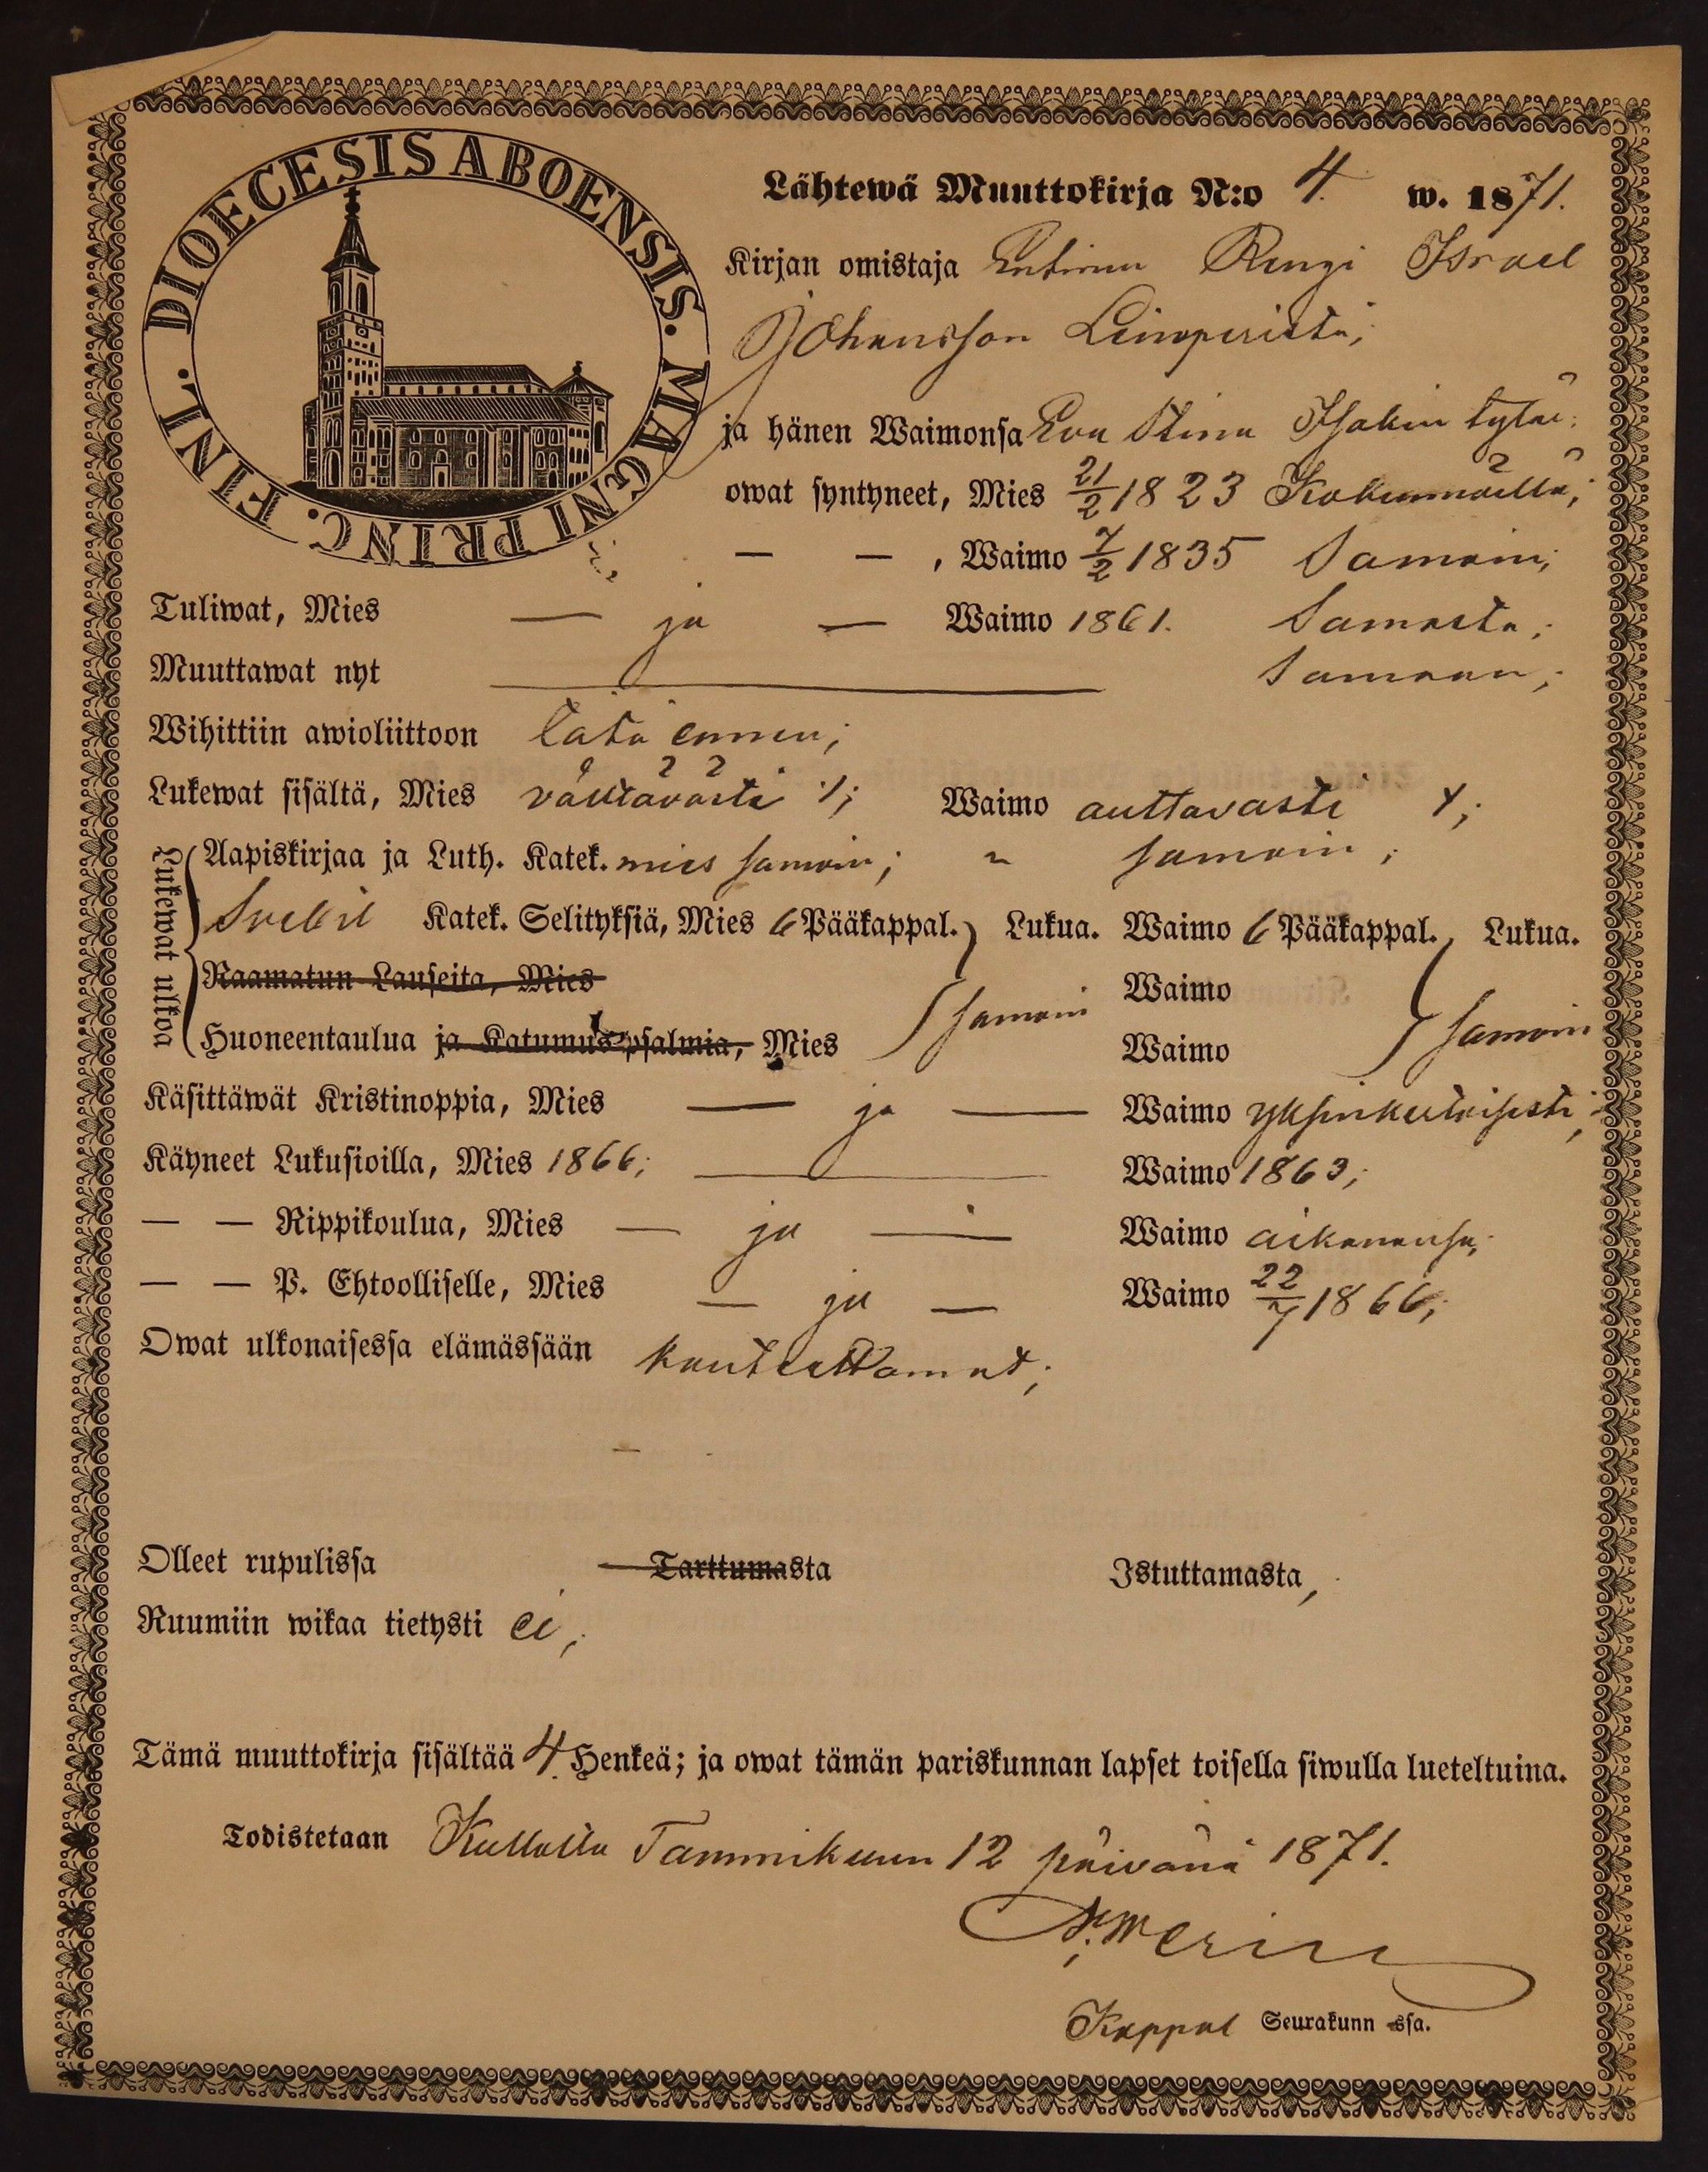 DIOECESIS ABOENSIS. MAGNI PRINC. FINL.
Lähtewä Muuttokirja N:o 4. w. 1871.
Kirjan omistaja Entinen Rengi Israel
Johansson Leineperistä;
ja hänen Waimonsa Eva Stina Isakin tytär;
owat syntyneet, Mies 21/2 1823 Kokemäellä;
— — , Waimo 7/2 1835 Samoin;
Tuliwat, Mies — ja — Waimo 1861. Samasta;
Muuttawat nyt Samaan;
Wihittiin awioliittoon tätä ennen;
Lukewat sisältä, Mies välttävästi; Waimo auttavasti;
Lukewat ulkoa
Aapiskirjaa ja Luth. Katek. mies samoin; " samoin;
Svebil Katek. Selityksiä, Mies 6 Pääkappal. Lukua. Waimo 6 Pääkappal. Lukua.
Raamatun Lauseita, Mies samoin Waimo samoin
Huoneentaulua ja Katumus psalmia, Mies Waimo
Käsittäwät Kristinoppia, Mies — ja — Waimo yksinkertaisesti;
Käyneet Lukusioilla, Mies 1866; Waimo 1863;
— — Rippikoulua, Mies — ja — Waimo aikanansa;
— — P. Ehtoolliselle, Mies — ja — Waimo 22/7 1866;
Owat ulkonaisessa elämässään kanteettomat;
Olleet rupulissa Tarttumasta Istuttamasta,
Ruumiin wikaa tietysti ei;
Tämä muuttokirja sisältää 4 Henkeä; ja owat tämän pariskunnan lapset toisella siwulla lueteltuina.
Todistetaan Kullalla Tammikuun 12 päivänä 1871.
Kappal Seurakunn ssa.